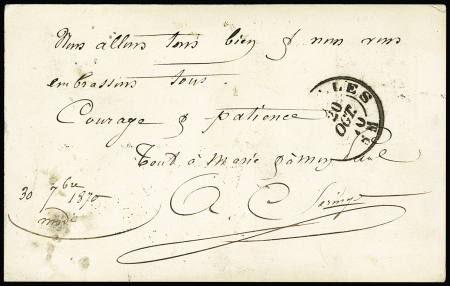 Nous allons tous bien & nous vous
embrassons tous.
Courage & patience
Tout à Marie
A. C.
30 7bre
1870
midi
LES
20
OCT.
70